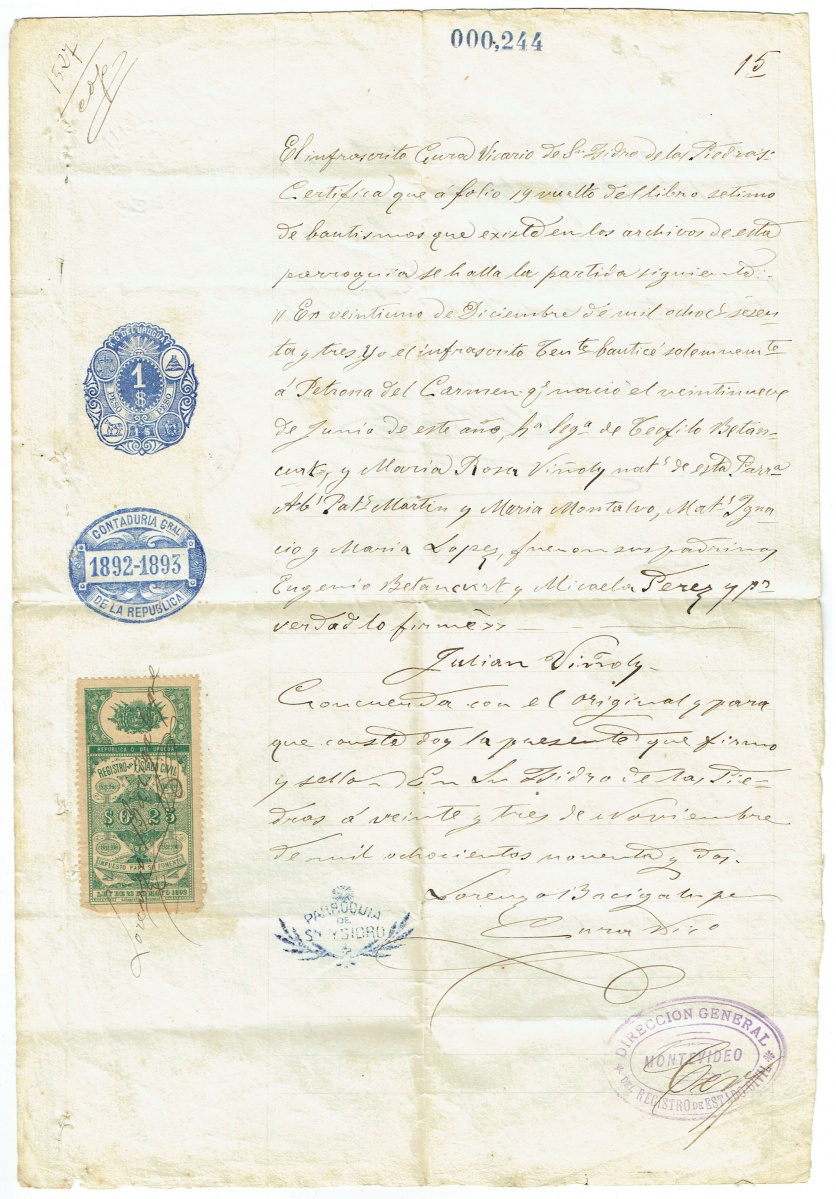 000,244
15
1527
El infrascrito Cura Vicario de Sn Isidro de las Piedras:
Certifica que á folio 19 vuelto del libro setimo
de bautismos que existe en los archivos de esta
parroquia se halla la partida siguiente:
"En veintiuno de Diciembre de mil ochocs sesen-
ta y tres, Yo el infrascrito Tente bauticé solemnemte
á Petrona del Carmen qe nació el veintinueve
de Junio de este año, ha lega de Teofilo Betan-
curt, y Maria Rosa Viñoly nats de esta Parra
Abs Pats Martin y Maria Montalvo, Mats Igna-
cio y Maria Lopez, fueron sus padrinos
Eugenio Betancurt y Micaela Perez y pr
verdad lo firmé»
Julian Viñoly
Concuerda con el original y para
que conste doy la presente que firmo
y sello En Sn Isidro de las Pie-
dras á veinte y tres de Noviembre
de mil ochocientos noventa y dos.
Lorenzo Bacigalupe
Cura Vico
R.O. DEL URUGUAY
1
$
PESO PESO
CONTADURIA GRAL
1892-1893
DE LA REPUBLICA
REPUBLICA O. DEL URUGUAY
REGISTRO DE ESTADO CIVIL
$0.25
IMPUESTO PARA SU FOMENTO
PARROQUIA
DE
Sn YSIDRO
DIRECCION GENERAL
MONTEVIDEO
DEL REGISTRO DE ESTADO CIVIL